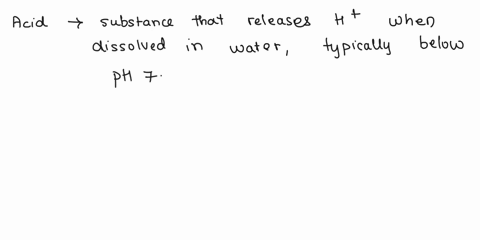 Acid → substance that releases H⁺ when
dissolved in water, typically below
pH 7.